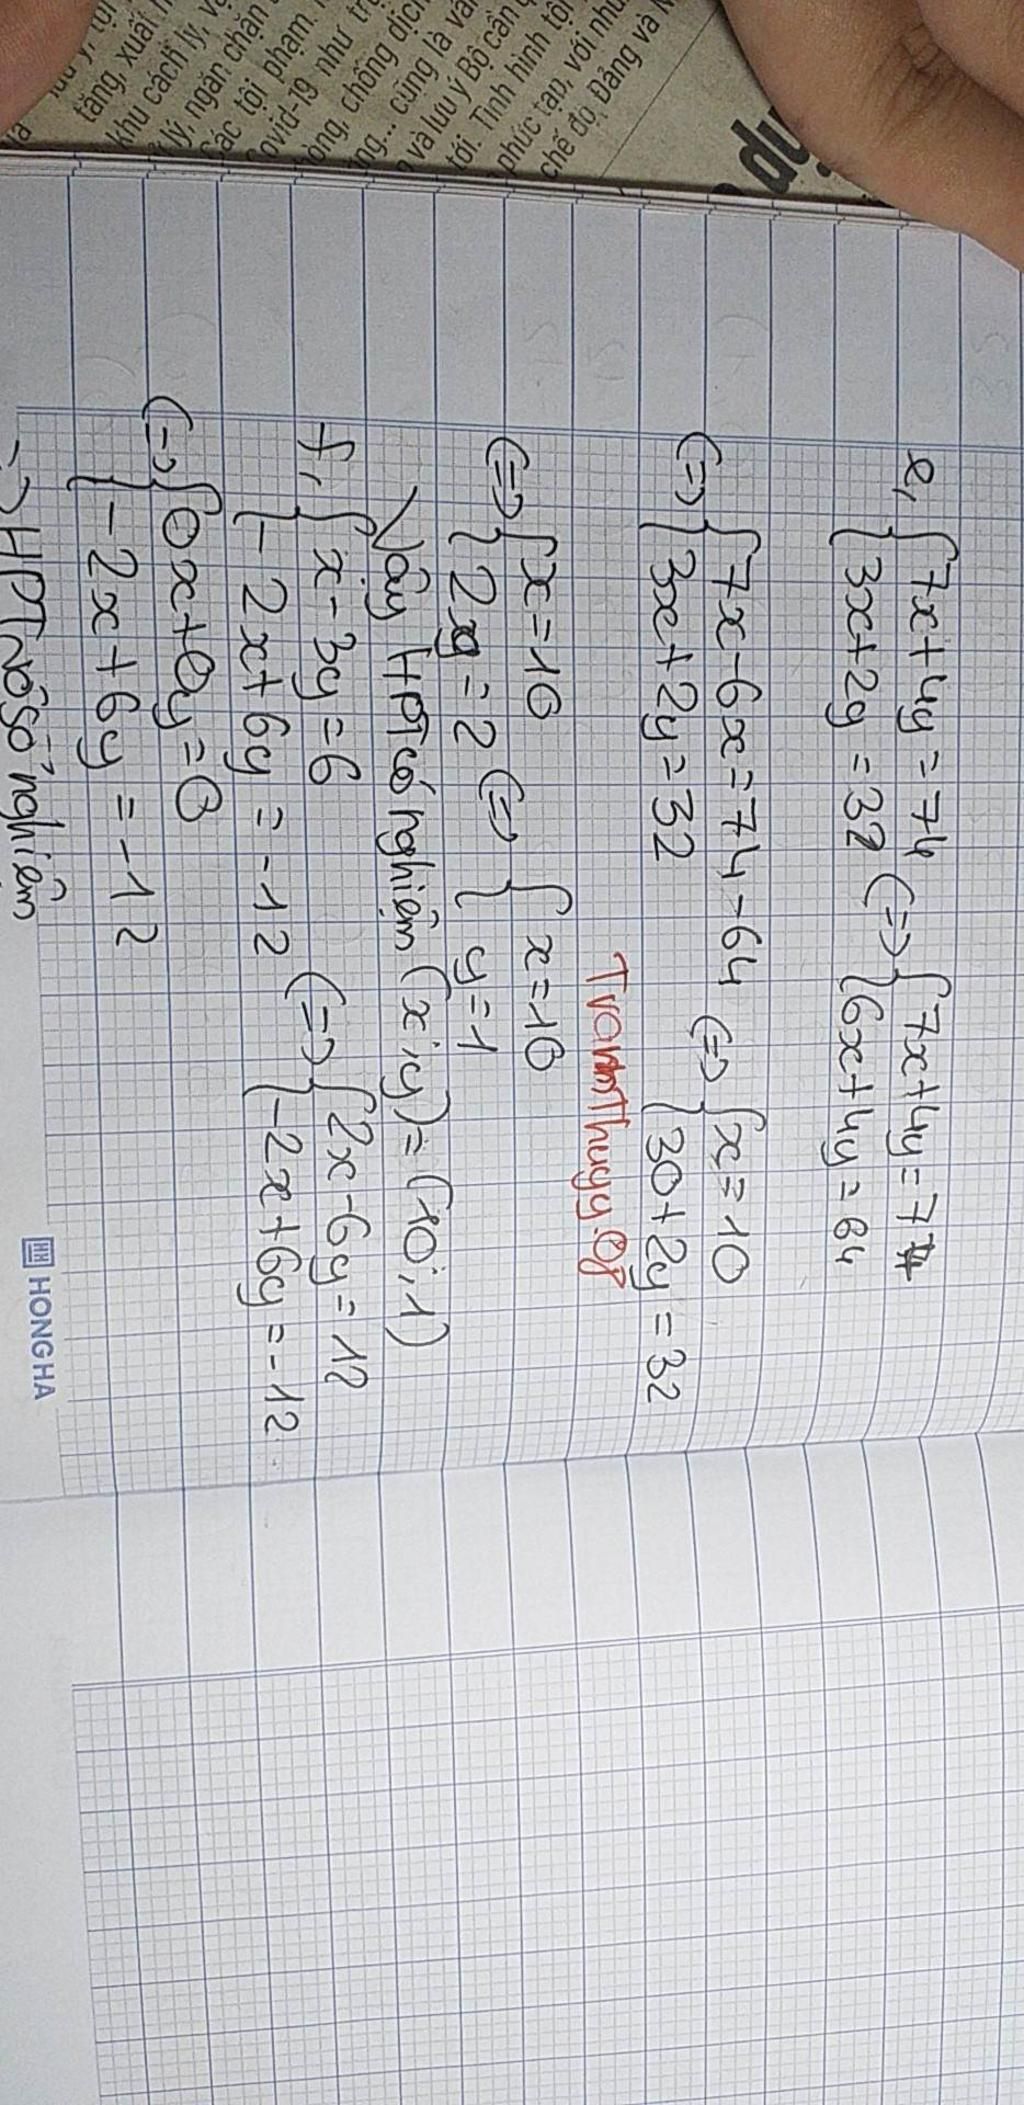 tăng, xuất
khu cách ly, v
lý, ngăn chặn
các tội phạm.
ovid-19 như tr
òng, chống dịch
ng... cũng là vấ
và lưu ý Bộ cần
tới. Tình hình tội
phức tạp, với nhữ
chế độ, Đảng và N
e, { 7x+4y=74
{ 3x+2y=32 <=> { 7x+4y=74
{ 6x+4y=64
<=> { 7x-6x=74-64
{ 3x+2y=32 <=> { x=10
{ 30+2y=32
TramThuyy.08
<=> { x=10
{ 2y=2 <=> { x=10
{ y=1
Vậy HPT có nghiệm (x;y)=(10;1)
f, { x-3y=6
{ -2x+6y=-12 <=> { 2x-6y=12
{ -2x+6y=-12
<=> { 0x+0y=0
{ -2x+6y=-12
=> HPT vô số nghiệm
HH HONG HA